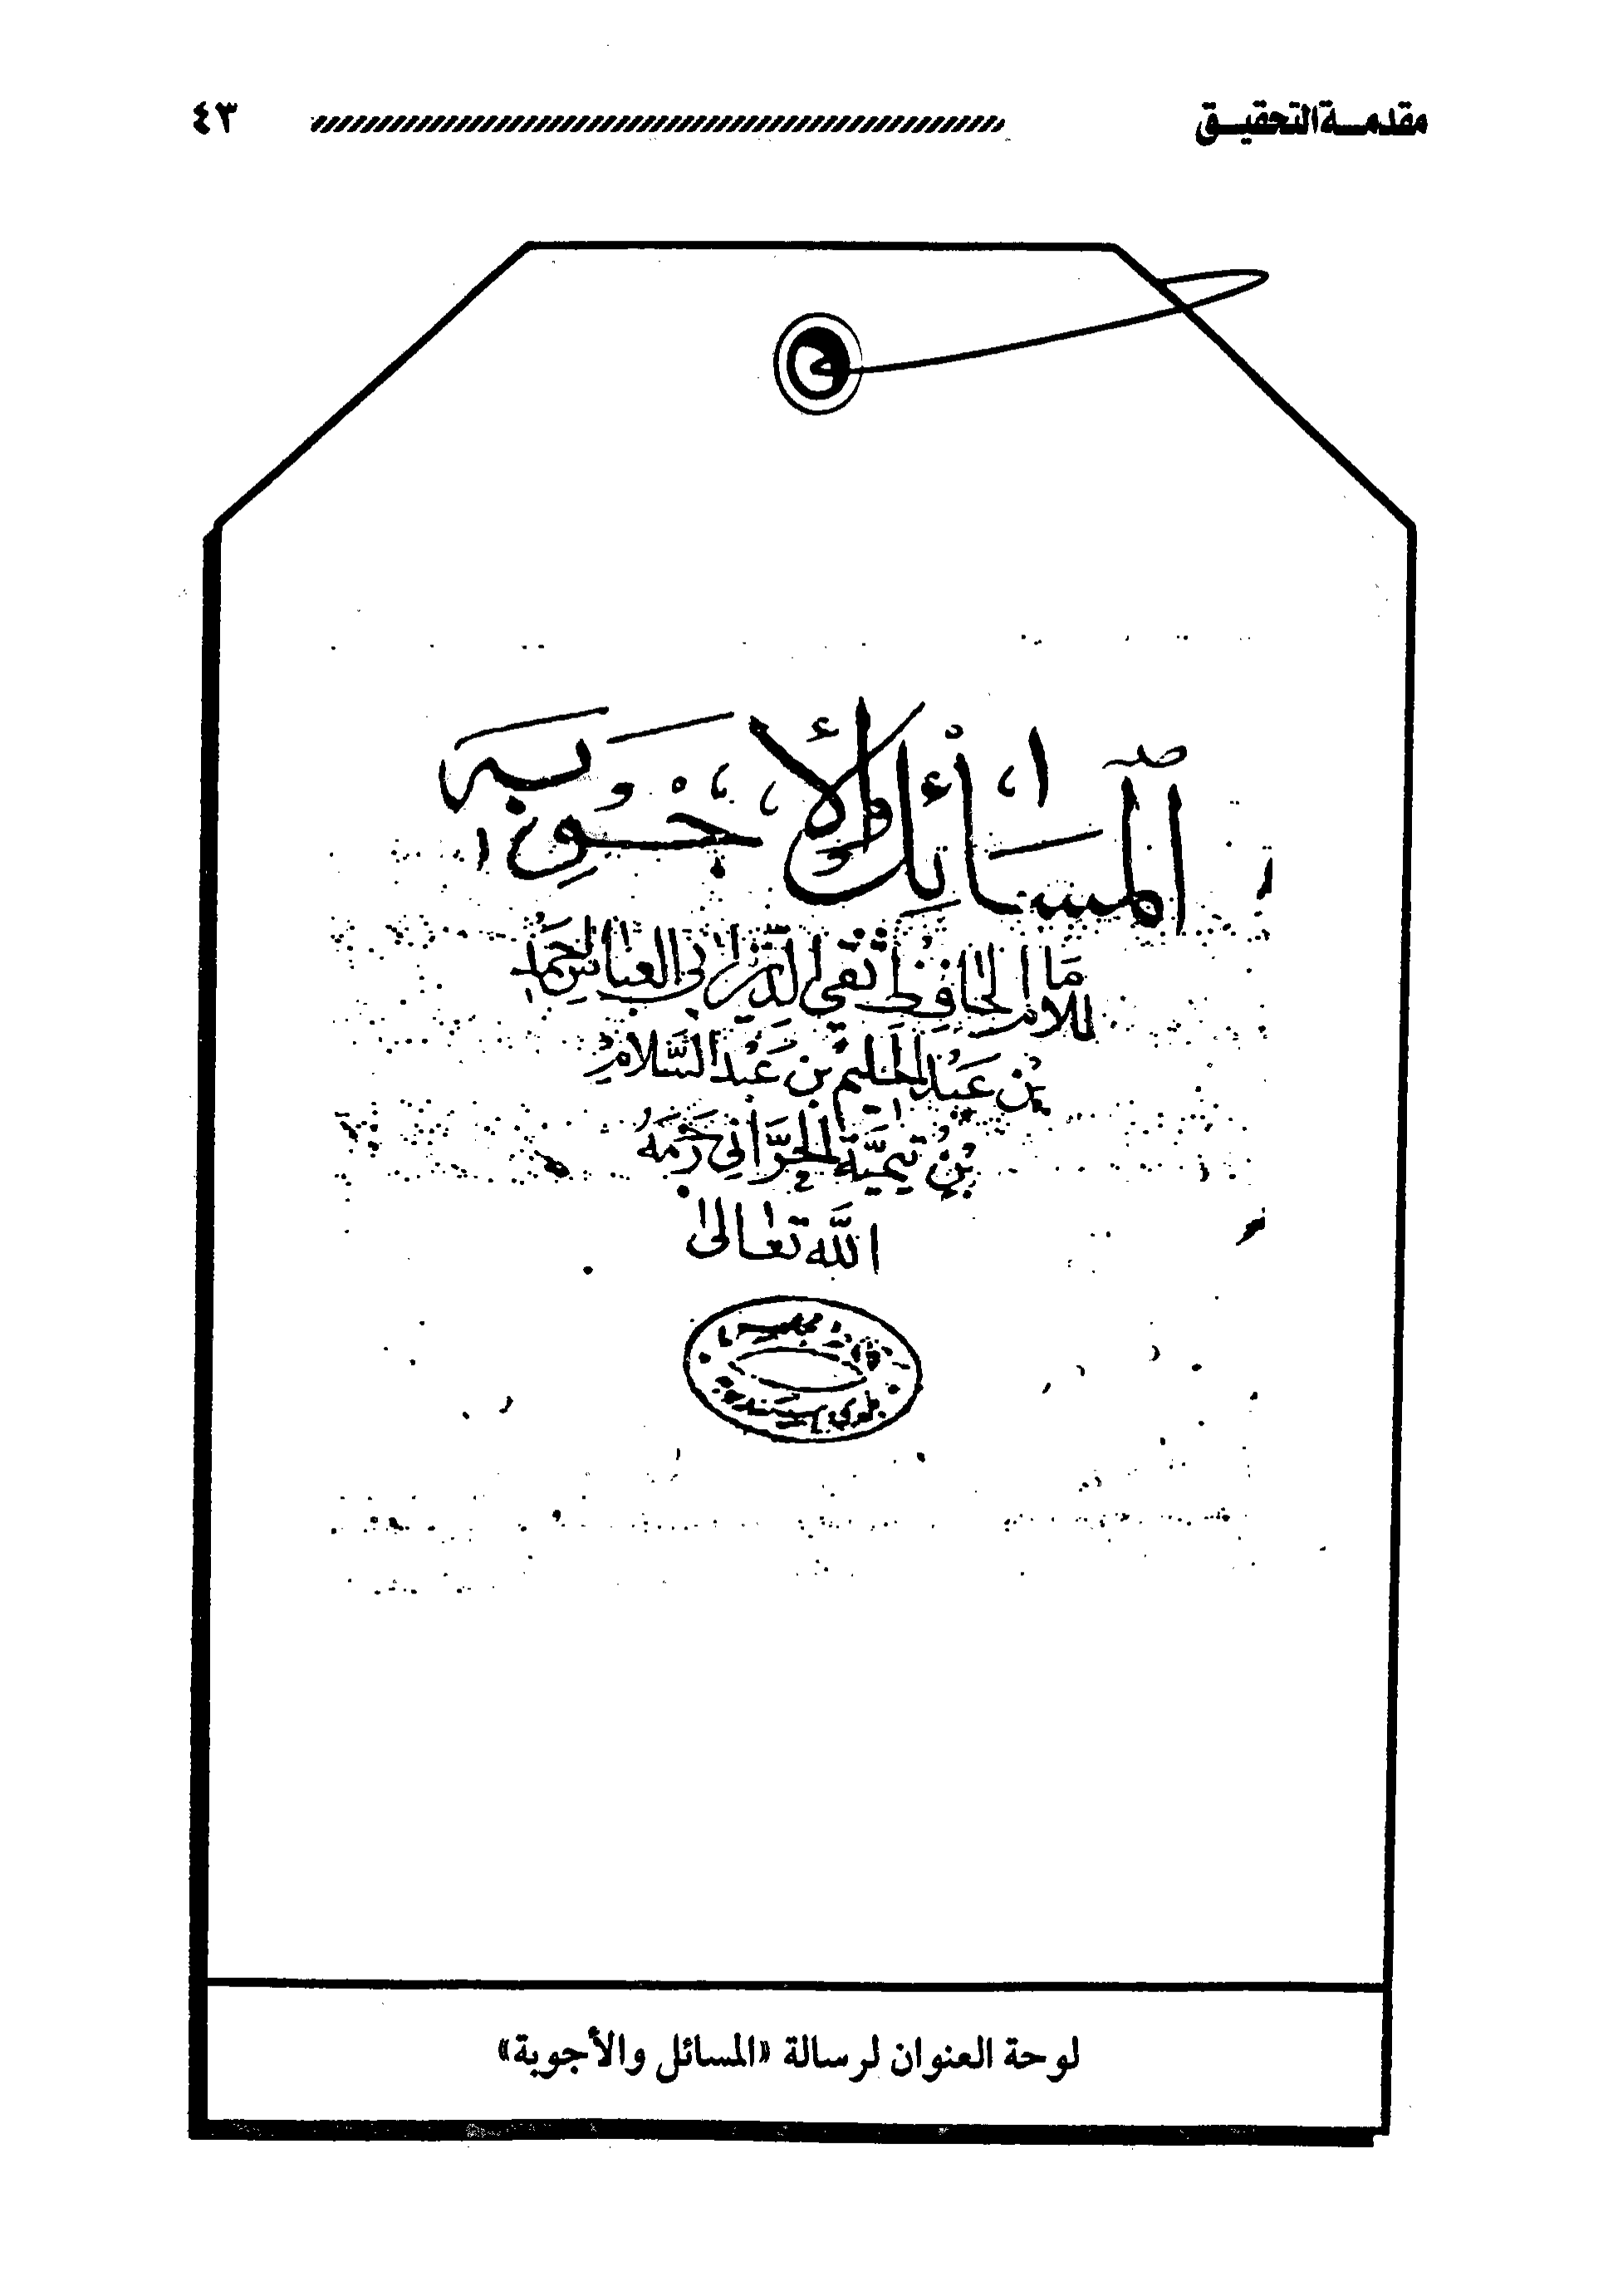 مقدمة التحقيق ٤٣
المسائل والأجوبة
للامام الحافظ تقي الدين أبي العباس أحمد
بن عبد الحليم بن عبد السلام
بن تيمية الحراني رحمه
الله تعالى
لوحة العنوان لرسالة «المسائل والأجوبة»